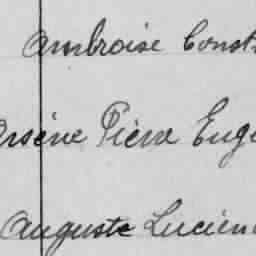 Ambroise Const
Arsène Pierre Eugè
Auguste Lucien